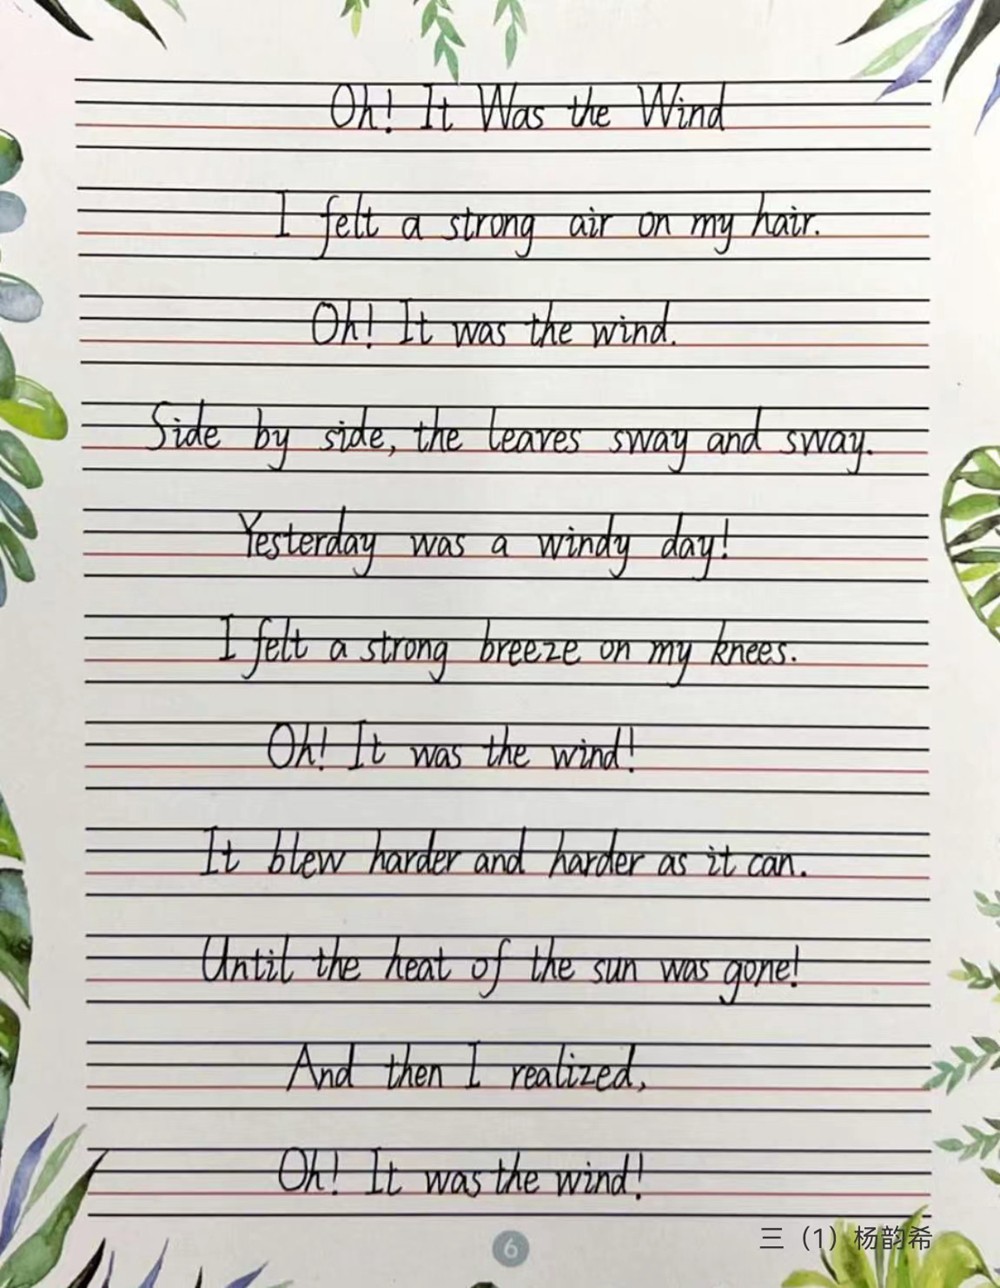 Oh! It Was the Wind
I felt a strong air on my hair.
Oh! It was the wind.
Side by side, the leaves sway and sway.
Yesterday was a windy day!
I felt a strong breeze on my knees.
Oh! It was the wind!
It blew harder and harder as it can.
Until the heat of the sun was gone!
And then I realized,
Oh! It was the wind!
6
三（1）杨韵希